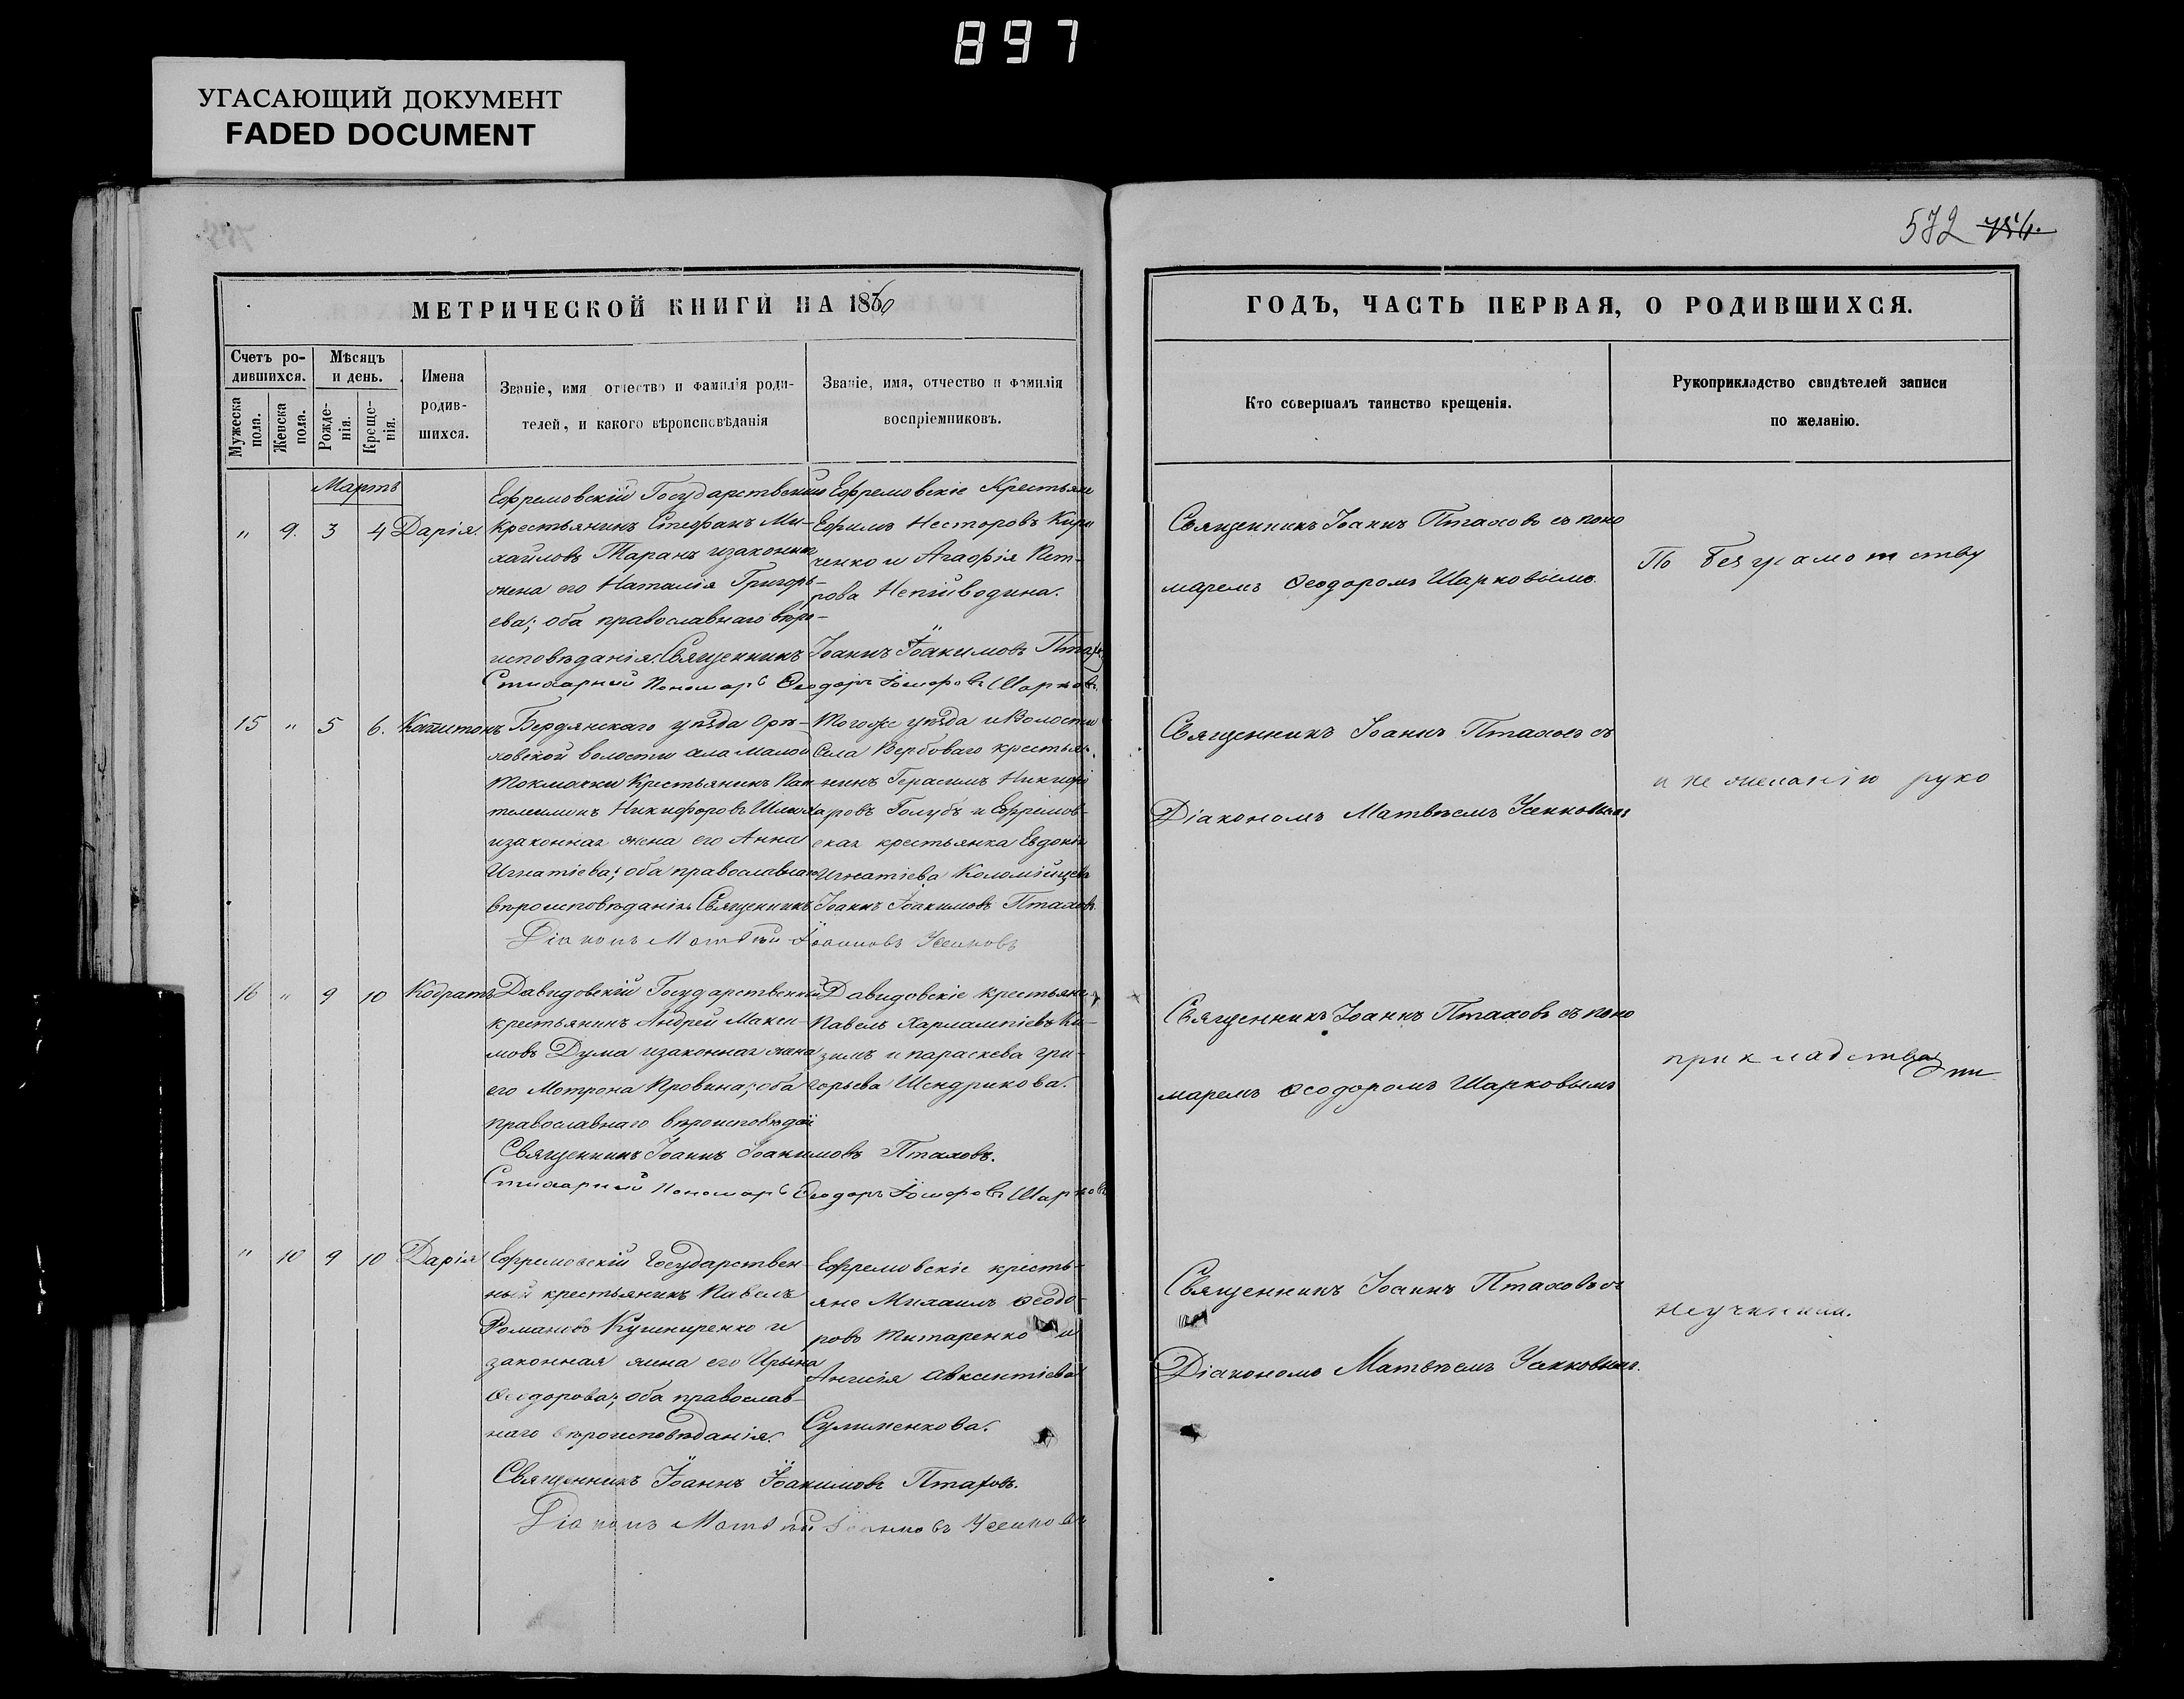 897
УГАСАЮЩИЙ ДОКУМЕНТ
FADED DOCUMENT
572 756.
МЕТРИЧЕСКОЙ КНИГИ НА 1860
Счетъ родившихся.
Мужеска пола.
Женска пола.
Мѣсяцъ и день.
Рожденія.
Крещенія.
Имена родившихся.
Званіе, имя отчество и фамилія родителей, и какого вѣроисповѣданія
Званіе, имя, отчество и фамилія воспріемниковъ.
ГОДЪ, ЧАСТЬ ПЕРВАЯ, О РОДИВШИХСЯ.
Кто совершалъ таинство крещенія.
Рукоприкладство свидѣтелей записи
по желанію.
Мартъ
" 9. 3 4 Дарія.
Ефремовскій Государственный
Крестьянинъ Стефанъ Ми-
хайловъ Таранъ и законная
жена его Наталія Григорь-
ева; оба православнаго вѣро-
исповѣданія. Священникъ Іоаннъ Іоакимовъ Птаховъ
Стихарный Пономарь Ѳеодоръ Шарковъ
Ефремовскіе Крестьяне
Ефимъ Несторовъ Кири
ченко и Агафія Пет-
рова Непійводина.
Священникъ Іоаннъ Птаховъ съ поно
маремъ Ѳеодоромъ Шарковымъ.
По безграмотству
15 " 5 6. Капитонъ
Бердянскаго уѣзда Орѣ-
ховской волости села Малой
Токмачки Крестьянинъ Пан
телеимонъ Никифоровъ
и законная жена его Анна
Игнатіева; оба православнаго
вѣроисповѣданія. Священникъ Іоаннъ Іоакимовъ Птаховъ
Діаконъ Матвѣй Іоанновъ Усенковъ
Тогоже уѣзда и Волости
Села Вербоваго крестья-
нинъ Герасимъ Никифо
ровъ Голубъ и Ефремов-
ская крестьянка Евдокія
Игнатіева Коломійцева
Священникъ Іоаннъ Птаховъ съ
Діакономъ Матвѣемъ Усенковымъ
и не желанію руко
16 " 9 10 Кодратъ
Давидовскій Государственный
крестьянинъ Андрей Макси-
мовъ Дума и законная жена
его Мотрона Провина; оба
православнаго вѣроисповѣдай
Священникъ Іоаннъ Іоакимовъ Птаховъ.
Стихарный Пономарь Ѳеодоръ Шарковъ
Давидовскіе крестьяне
Павелъ Харлампіевъ Ки-
зимъ и Параскева Гри-
горьева Шендрикова.
Священникъ Іоаннъ Птаховъ съ поно
маремъ Ѳеодоромъ Шарковымъ
прикладства
" 10 9 10 Дарія
Ефремовскій Государствен-
ный крестьянинъ Павелъ
Романовъ Кушниренко и
законная жена его Ирына
Ѳеодорова; оба православ-
наго вѣроисповѣданія.
Священникъ Іоаннъ Іоакимовъ Птаховъ.
Діаконъ Матвѣй Іоанновъ Усенковъ
Ефремовскіе кресть-
яне Михаилъ Ѳеодо-
ровъ Титаренко и
Анисія Авксентіева
Сулименкова.
Священникъ Іоаннъ Птаховъ съ
Діакономъ Матвѣемъ Усенковымъ.
неучинили.